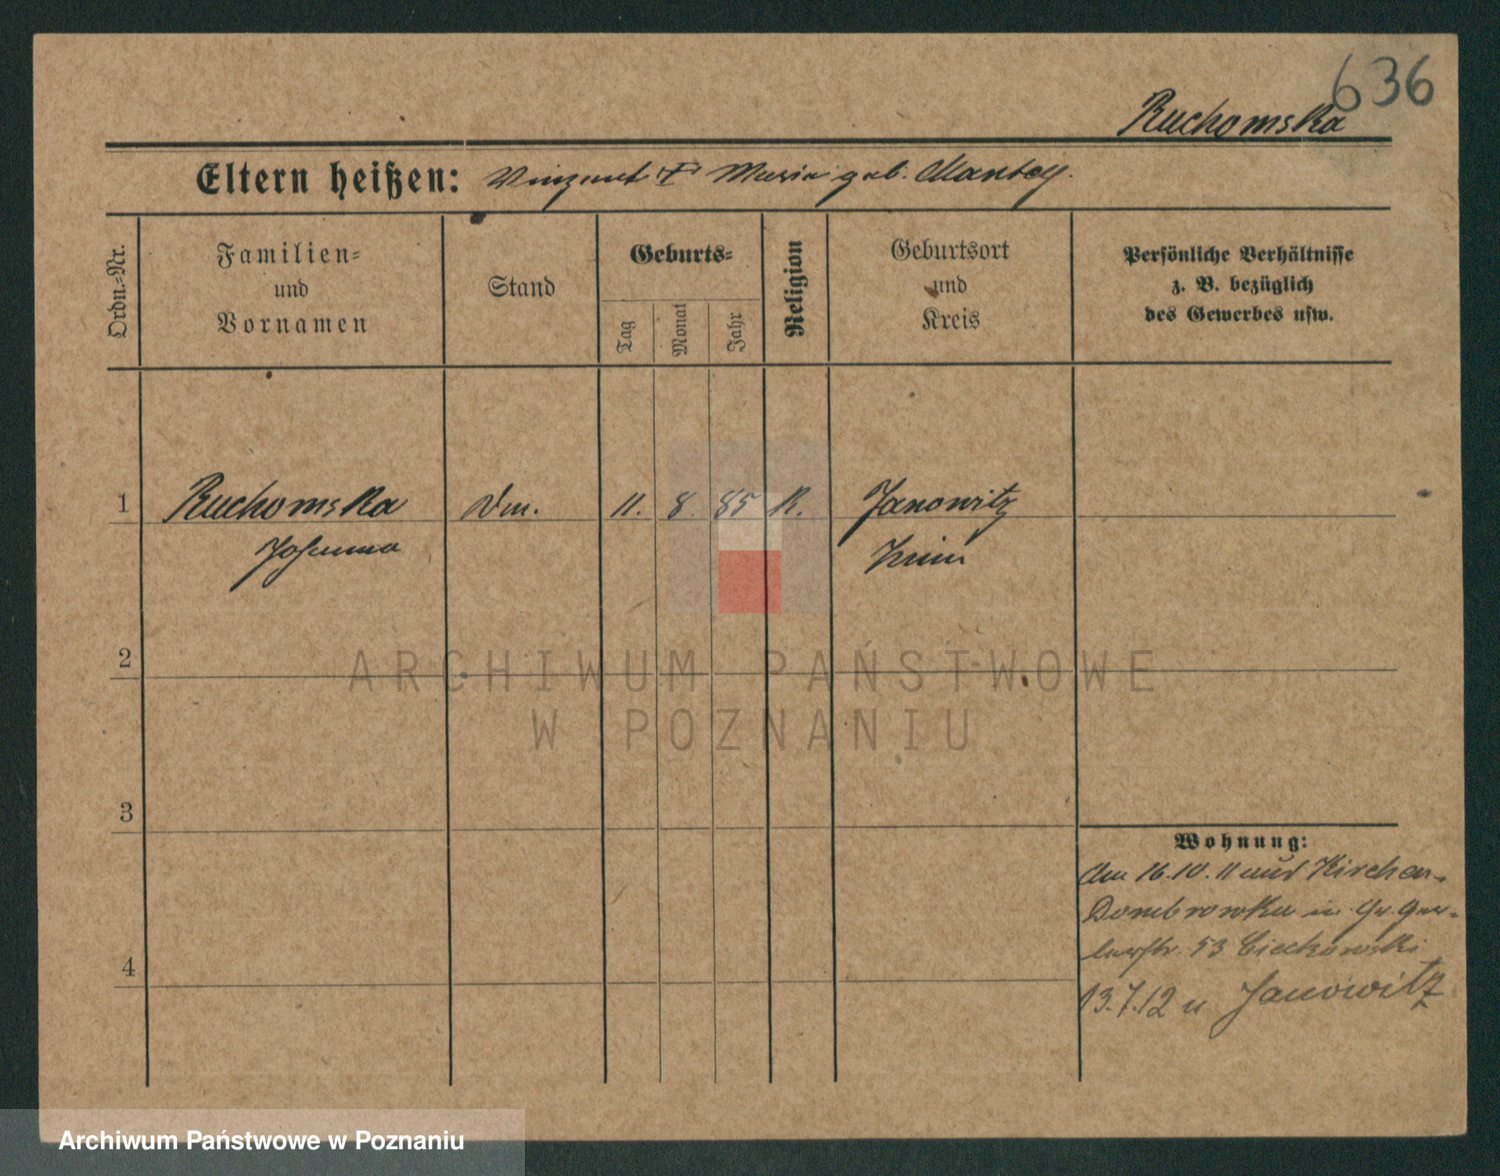 636
Ruchomska
Eltern heißen: Vinzent † Maria geb. Mantey.
Ordn.-Nr.
Familien-
und
Vornamen
Stand
Geburts-
Tag
Monat
Jahr
Religion
Geburtsort
und
Kreis
Persönliche Verhältnisse
z. B. bezüglich
des Gewerbes usw.
1 Ruchomska 11. 8. 85 K. Janowitz
Johanna Znin
2
ARCHIWUM PAŃSTWOWE
W POZNANIU
3
Wohnung:
Am 16.10.11 aus Kirchen-
Dombrowka in Gr. Ger-
berstr. 53
4
13.7.12 n Janowitz
Archiwum Państwowe w Poznaniu